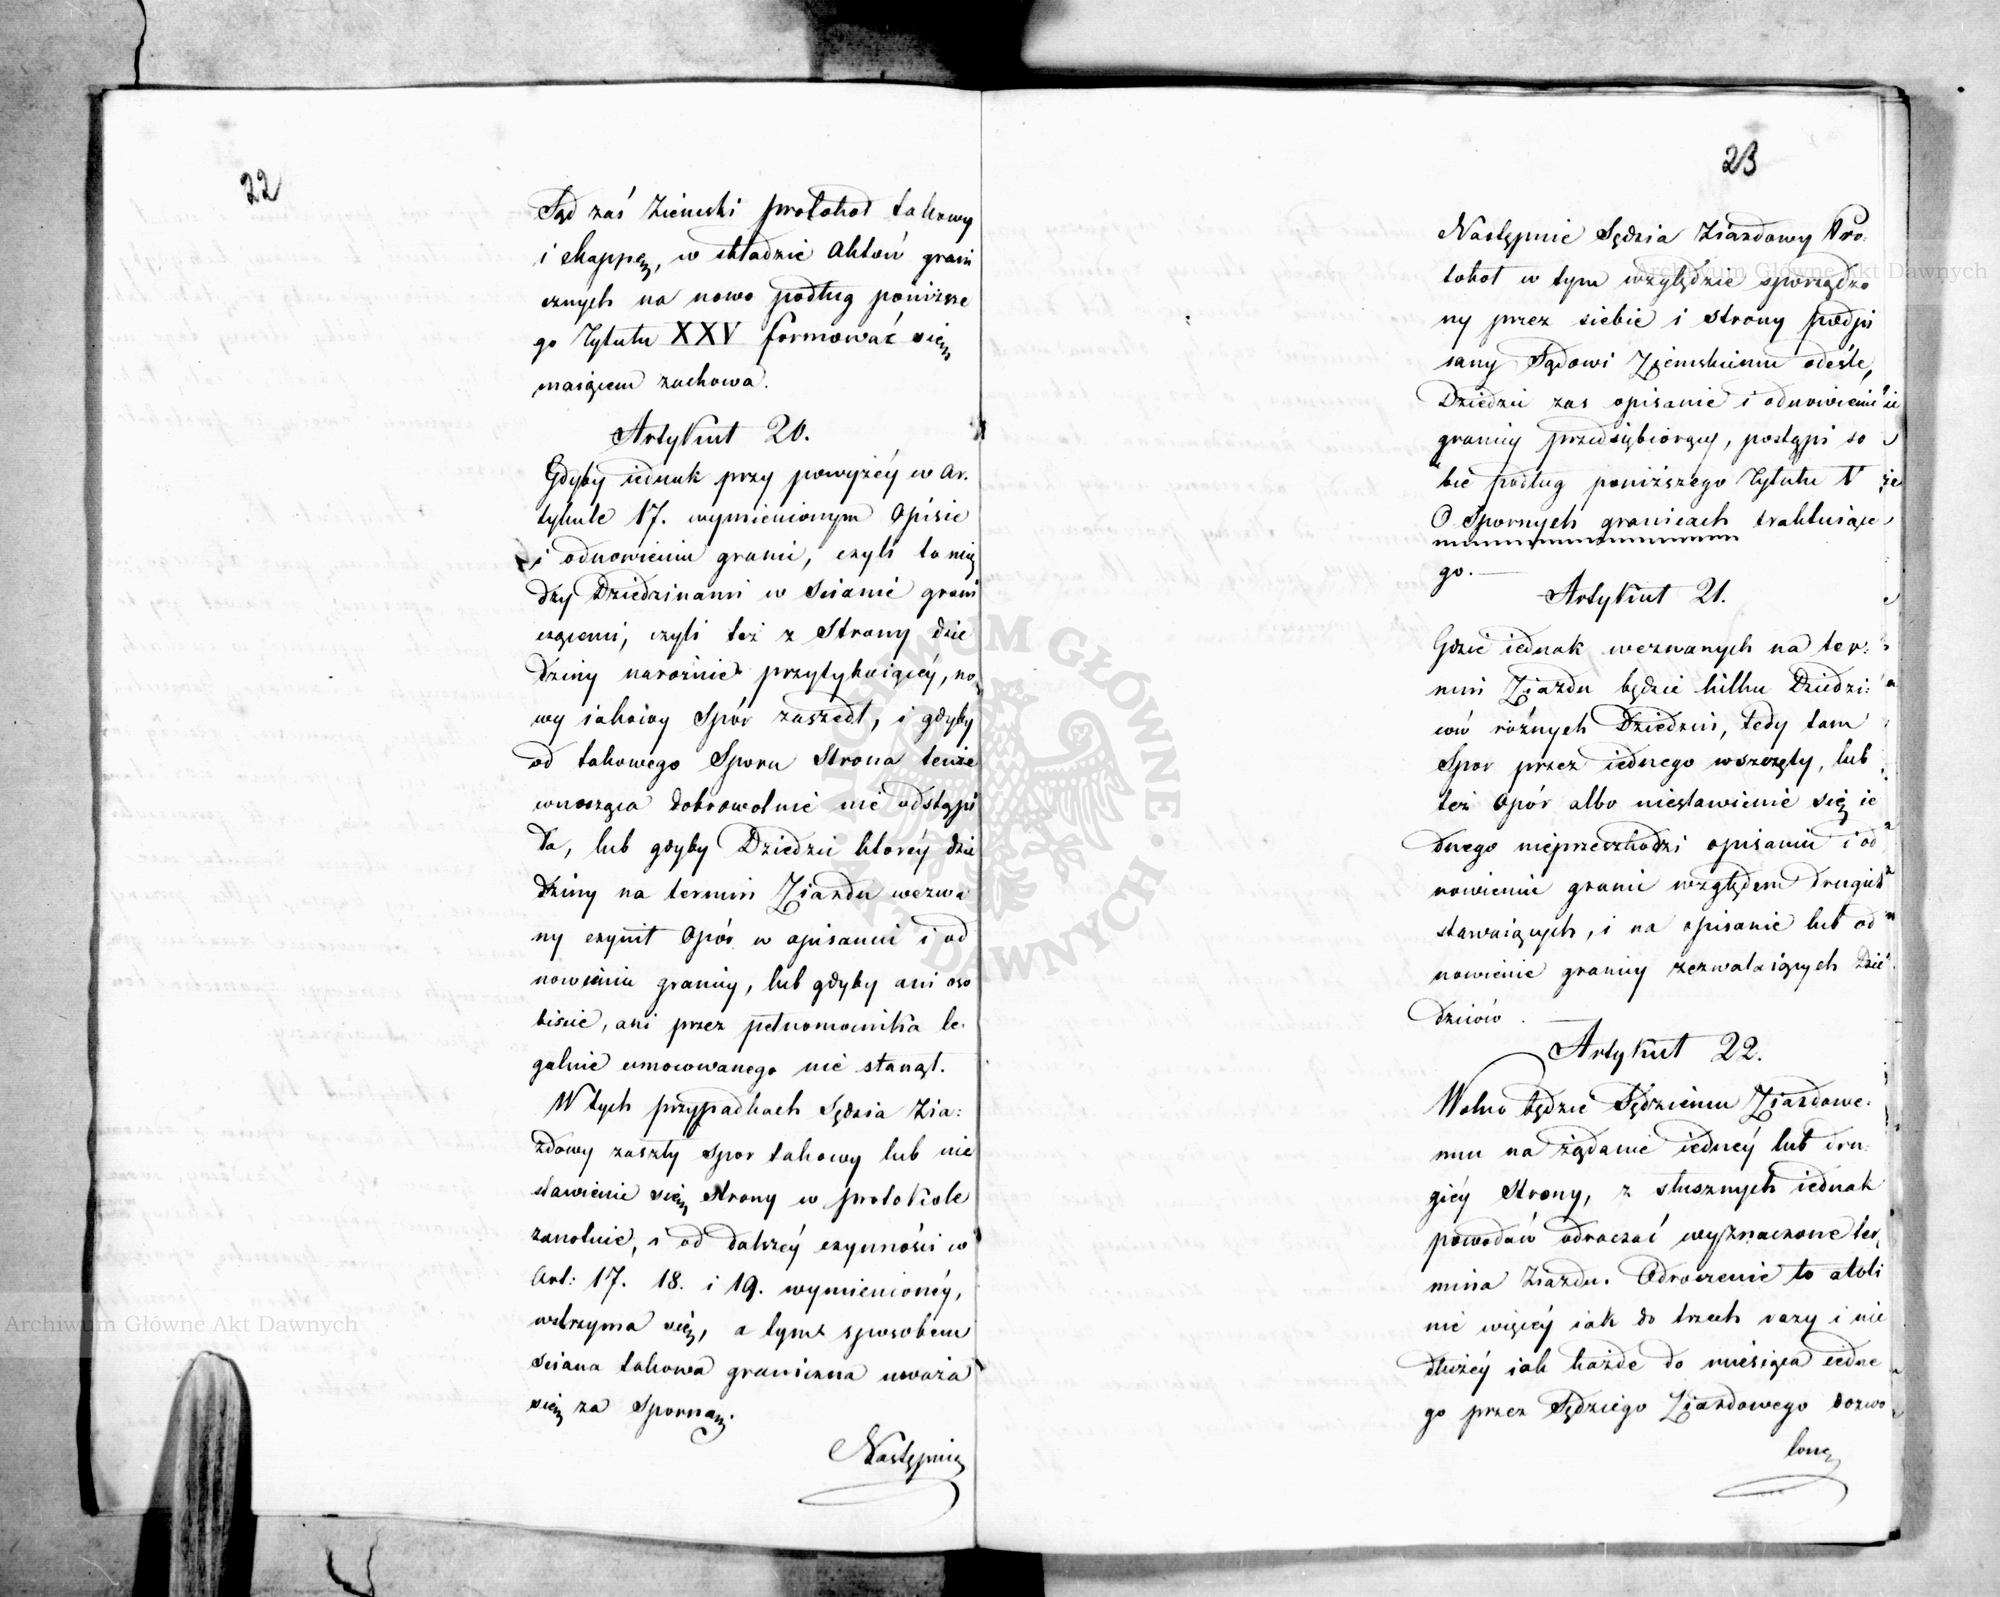 22
Sąd zaś Ziemski protokoł takowy
i Mappę, w składzie Aktow grani
cznych na nowo podług poniższe
go Tytułu XXV formować się
maiącem zachowa.
Artykuł 20.
Gdyby iednak przy powyżéy w Ar.
tykule 17. wymienionym Opisie
i odnowieniu granic, czyli to mię
dzy Dziedzinami w Scianie grani
czącemi, czyli też z Strony dzie
dziny narożnie przytykaiącéy, no
wy iakowy Spór zaszedł, i gdyby
od takowego Sporu Strona tenże
wnosząca dobrowolnie nie odstąpi
ła, lub gdyby Dziedzic któréy dzie
dziny na termin Zjazdu wezwa
ny czynił Opór w opisaniu i od
nowieniu granicy, lub gdyby ani oso
biscie, ani przez pełnomocnika le-
galnie umocowanego nie stanął.
W tych przypadkach Sędzia Zia:
zdowy zaszły Spor takowy lub nie
stawienie się Strony w protokole
zanotuie, i od dalszéy czynności w
Art: 17. 18. i 19. wymienionéy,
wstrzyma się, a tym sposobem
sciana takowa graniczna uważa
się za Sporną.
Następnie
23
Następnie Sędzia Ziazdowy Pro:
tokoł w tym względzie sporządzo
ny przez siebie i Strony podpi
sany Sądowi Ziemskiemu odeśle,
Dziedzic zas opisanie i odnowienie
granicy przedsiębiorący, postąpi so
bie podług poniższego Tytułu V
O Spornych granicach traktuiące
go.
Artykuł 21.
Gdzie iednak wezwanych na ter:
min Zjazdu będzie kilku Dziedzi:
ców różnych Dziedzin, tedy tam
Spor przez iednego wszczęty, lub
też Opór albo niestawienie się ie
dnego nieprzeszkodzi opisaniu i od
nowieniu granic względem drugich
stawaiących, i na opisanie lub od
nowienie granicy zezwalaiących Dzie
dziców.
Artykuł 22.
Wolno będzie Sędziemu Zjazdowe-
mu na żądanie iednéy lub dru-
giéy Strony, z słusznych iednak
powodów odraczać wyznaczone ter,
mina Ziazdu. Odroczenie to atoli
nie więcéy iak do trzech razy i nie
dłużéy iak każde do miesiąca iedne
go przez Sędziego Zjazdowego dozwo
lone
Archiwum Główne Akt Dawnych
Archiwum Główne Akt Dawnych
ARCHIWUM GŁÓWNE AKT DAWNYCH